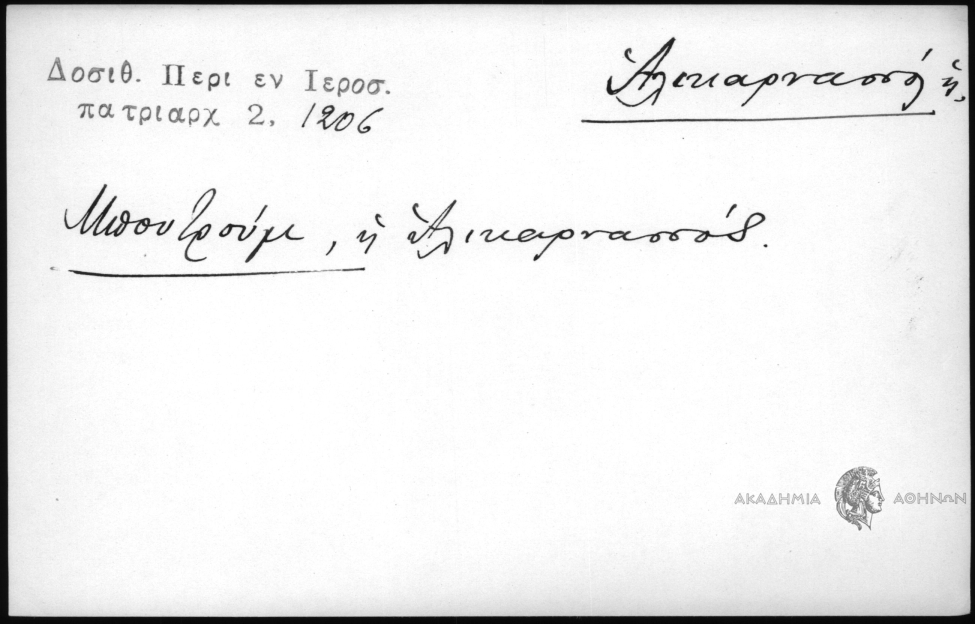 Δοσιθ. Περι εν Ιεροσ.
πατριαρχ 2, 1206
Ἁλικαρνασσός ἡ,
Μπουτρούμι, ἡ Ἁλικαρνασσός.
ΑΚΑΔΗΜΙΑ ΑΘΗΝΩΝ